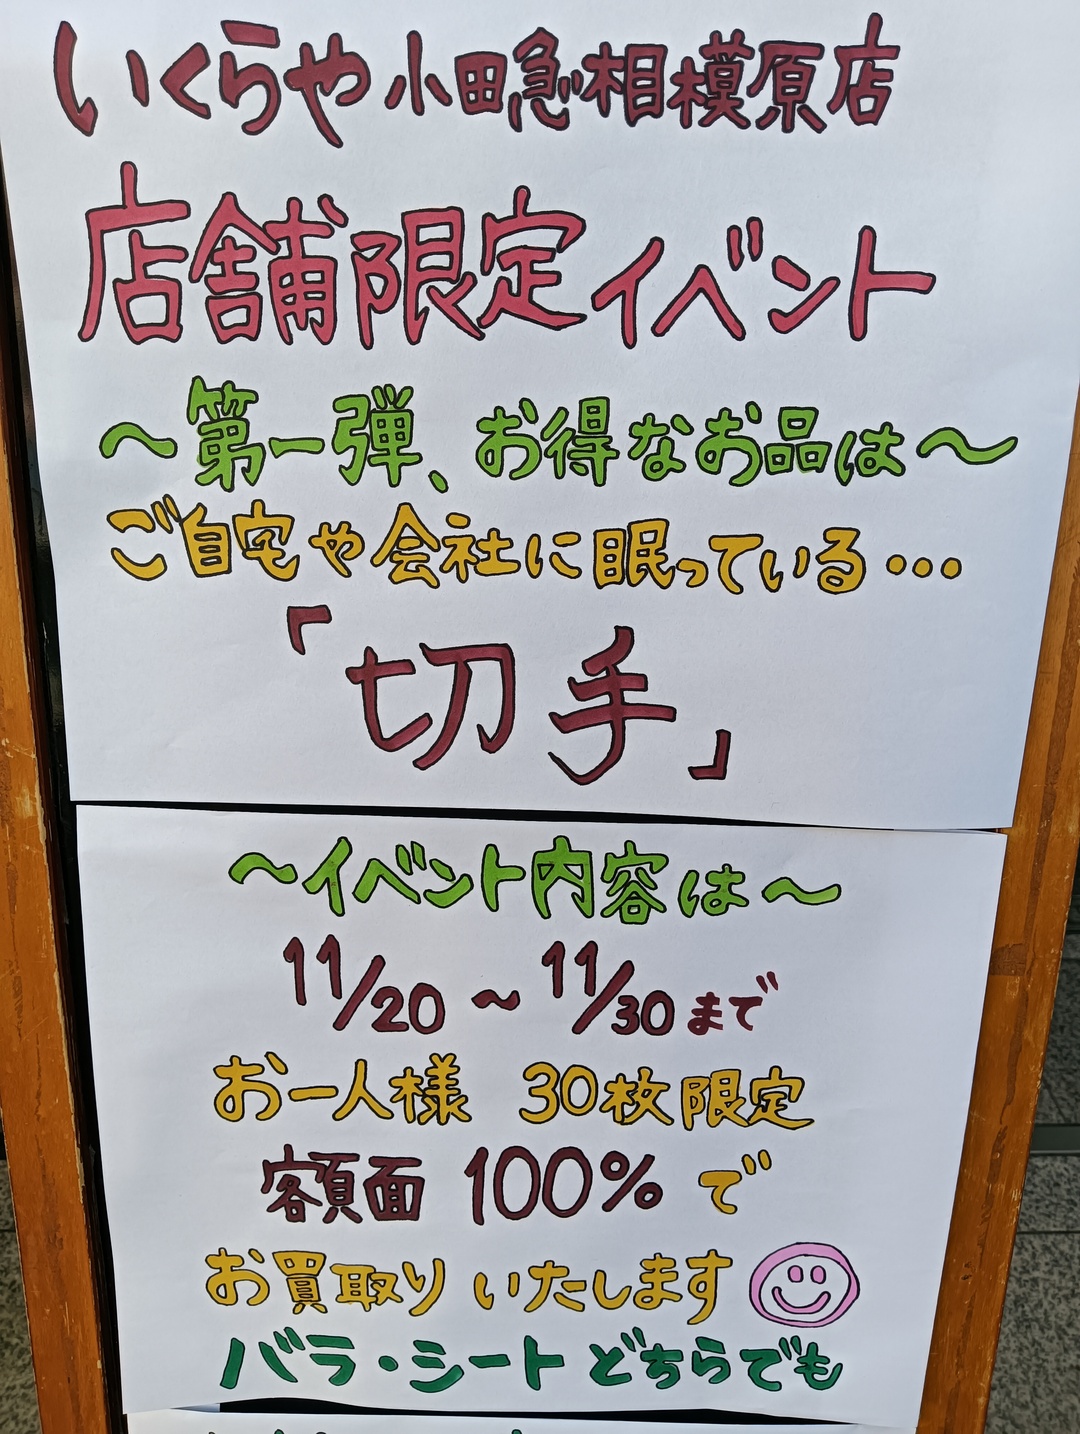 いくらや小田急相模原店
店舗限定イベント
〜第一弾、お得なお品は〜
ご自宅や会社に眠っている・・・
「切手」
〜イベント内容は〜
11/20〜11/30まで
お一人様 30枚限定
額面 100%で
お買取りいたします
バラ・シートどちらでも